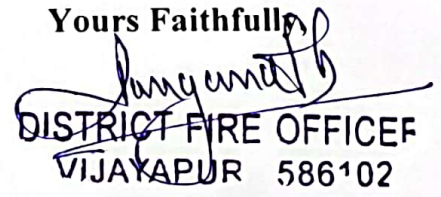 Yours Faithfully
DISTRICT FIRE OFFICER
VIJAYAPUR 586102